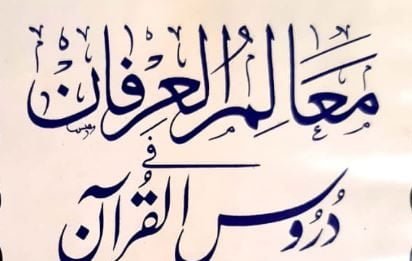 مَعَالِمُ الْعِرْفَانْ
فِي
دُرُوسِ الْقُرْآن